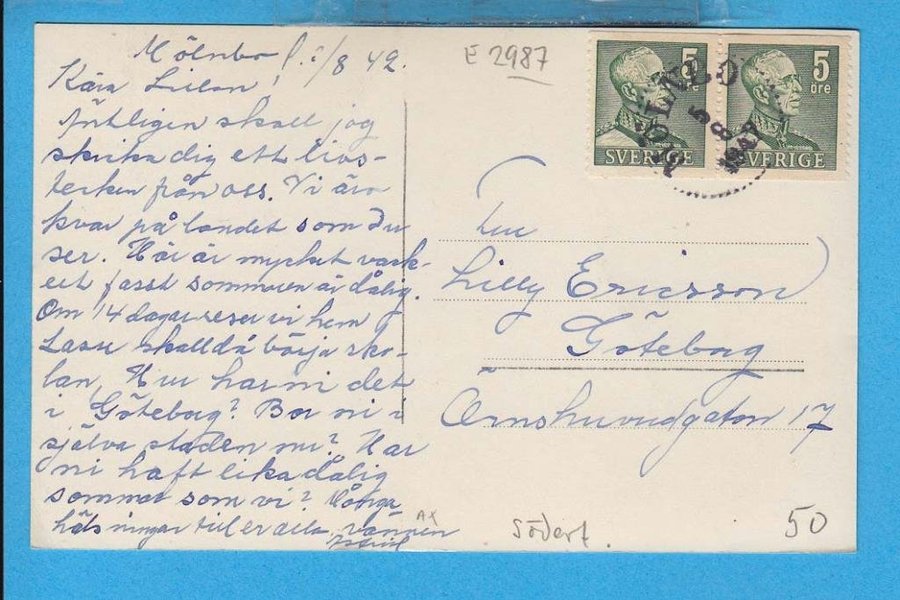 Mölnbo /8 42.
Kära Lillan!
Äntligen skall jag
skicka dig ett livs-
tecken från oss. Vi äro
kvar på landet som du
ser. Här är mycket vack-
ert fasst sommaren är dålig.
Om 14 dagar reser vi hem
Lasse skall då börja sko-
lan, Hur har ni det
i Göteborg? Bor ni i
själva staden nu? Har
ni haft lika dålig
sommar som vi? Många
hälsningar till er alla, vännen
E 2987
5 öre
SVERIGE
5 öre
SVERIGE
MÖLNBO
5
8
1942
Fru
Lilly Ericsson
Göteborg
Örnehuvudgatan 17
AX
Södert.
50